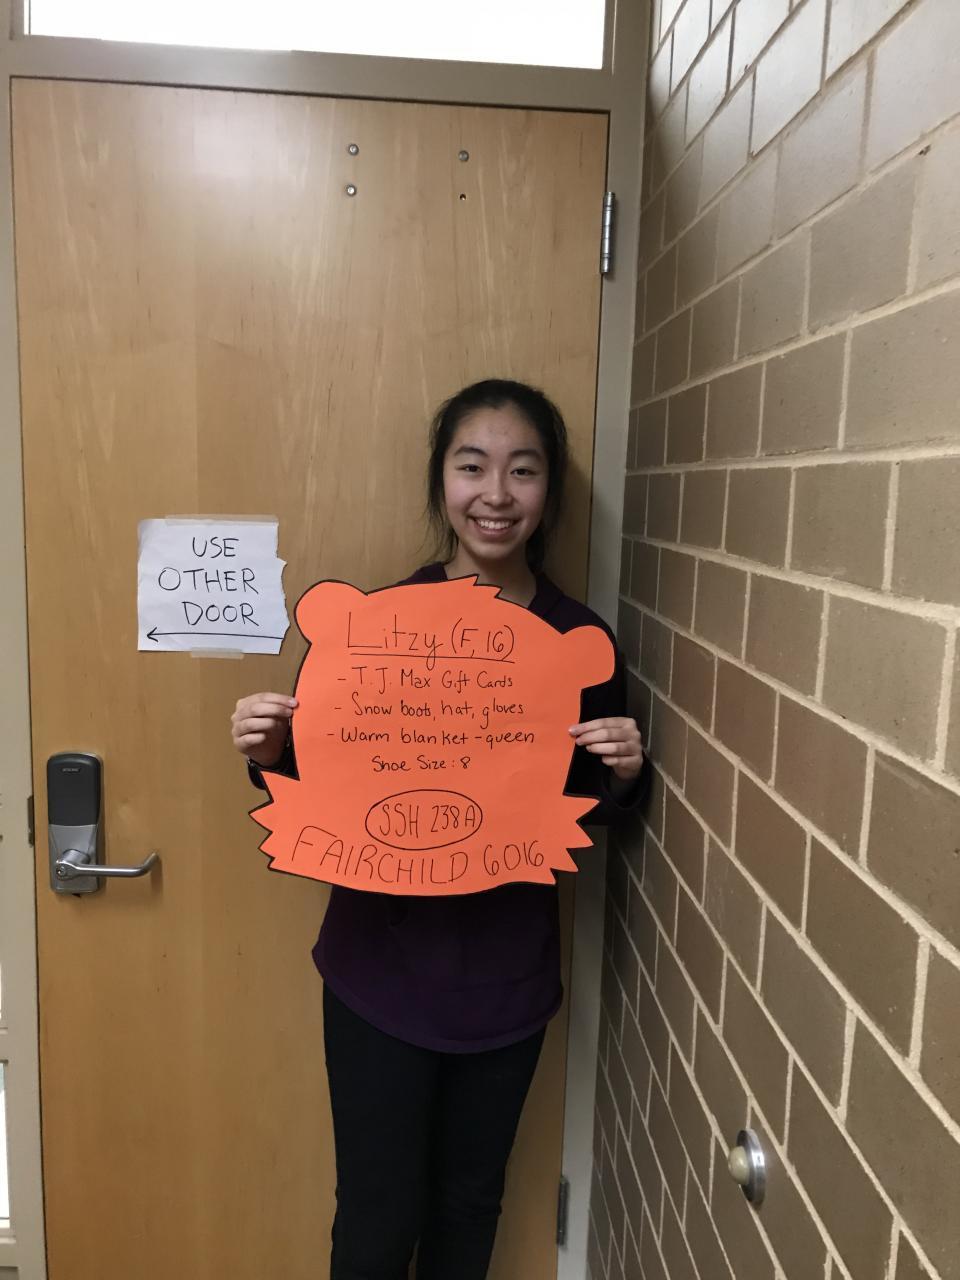 USE
OTHER
DOOR
Litzy (F, 16)
- T.J. Max Gift Cards
- Snow boots, hat, gloves
- Warm blanket - queen
Shoe Size: 8
SSH 238A
FAIRCHILD 6016